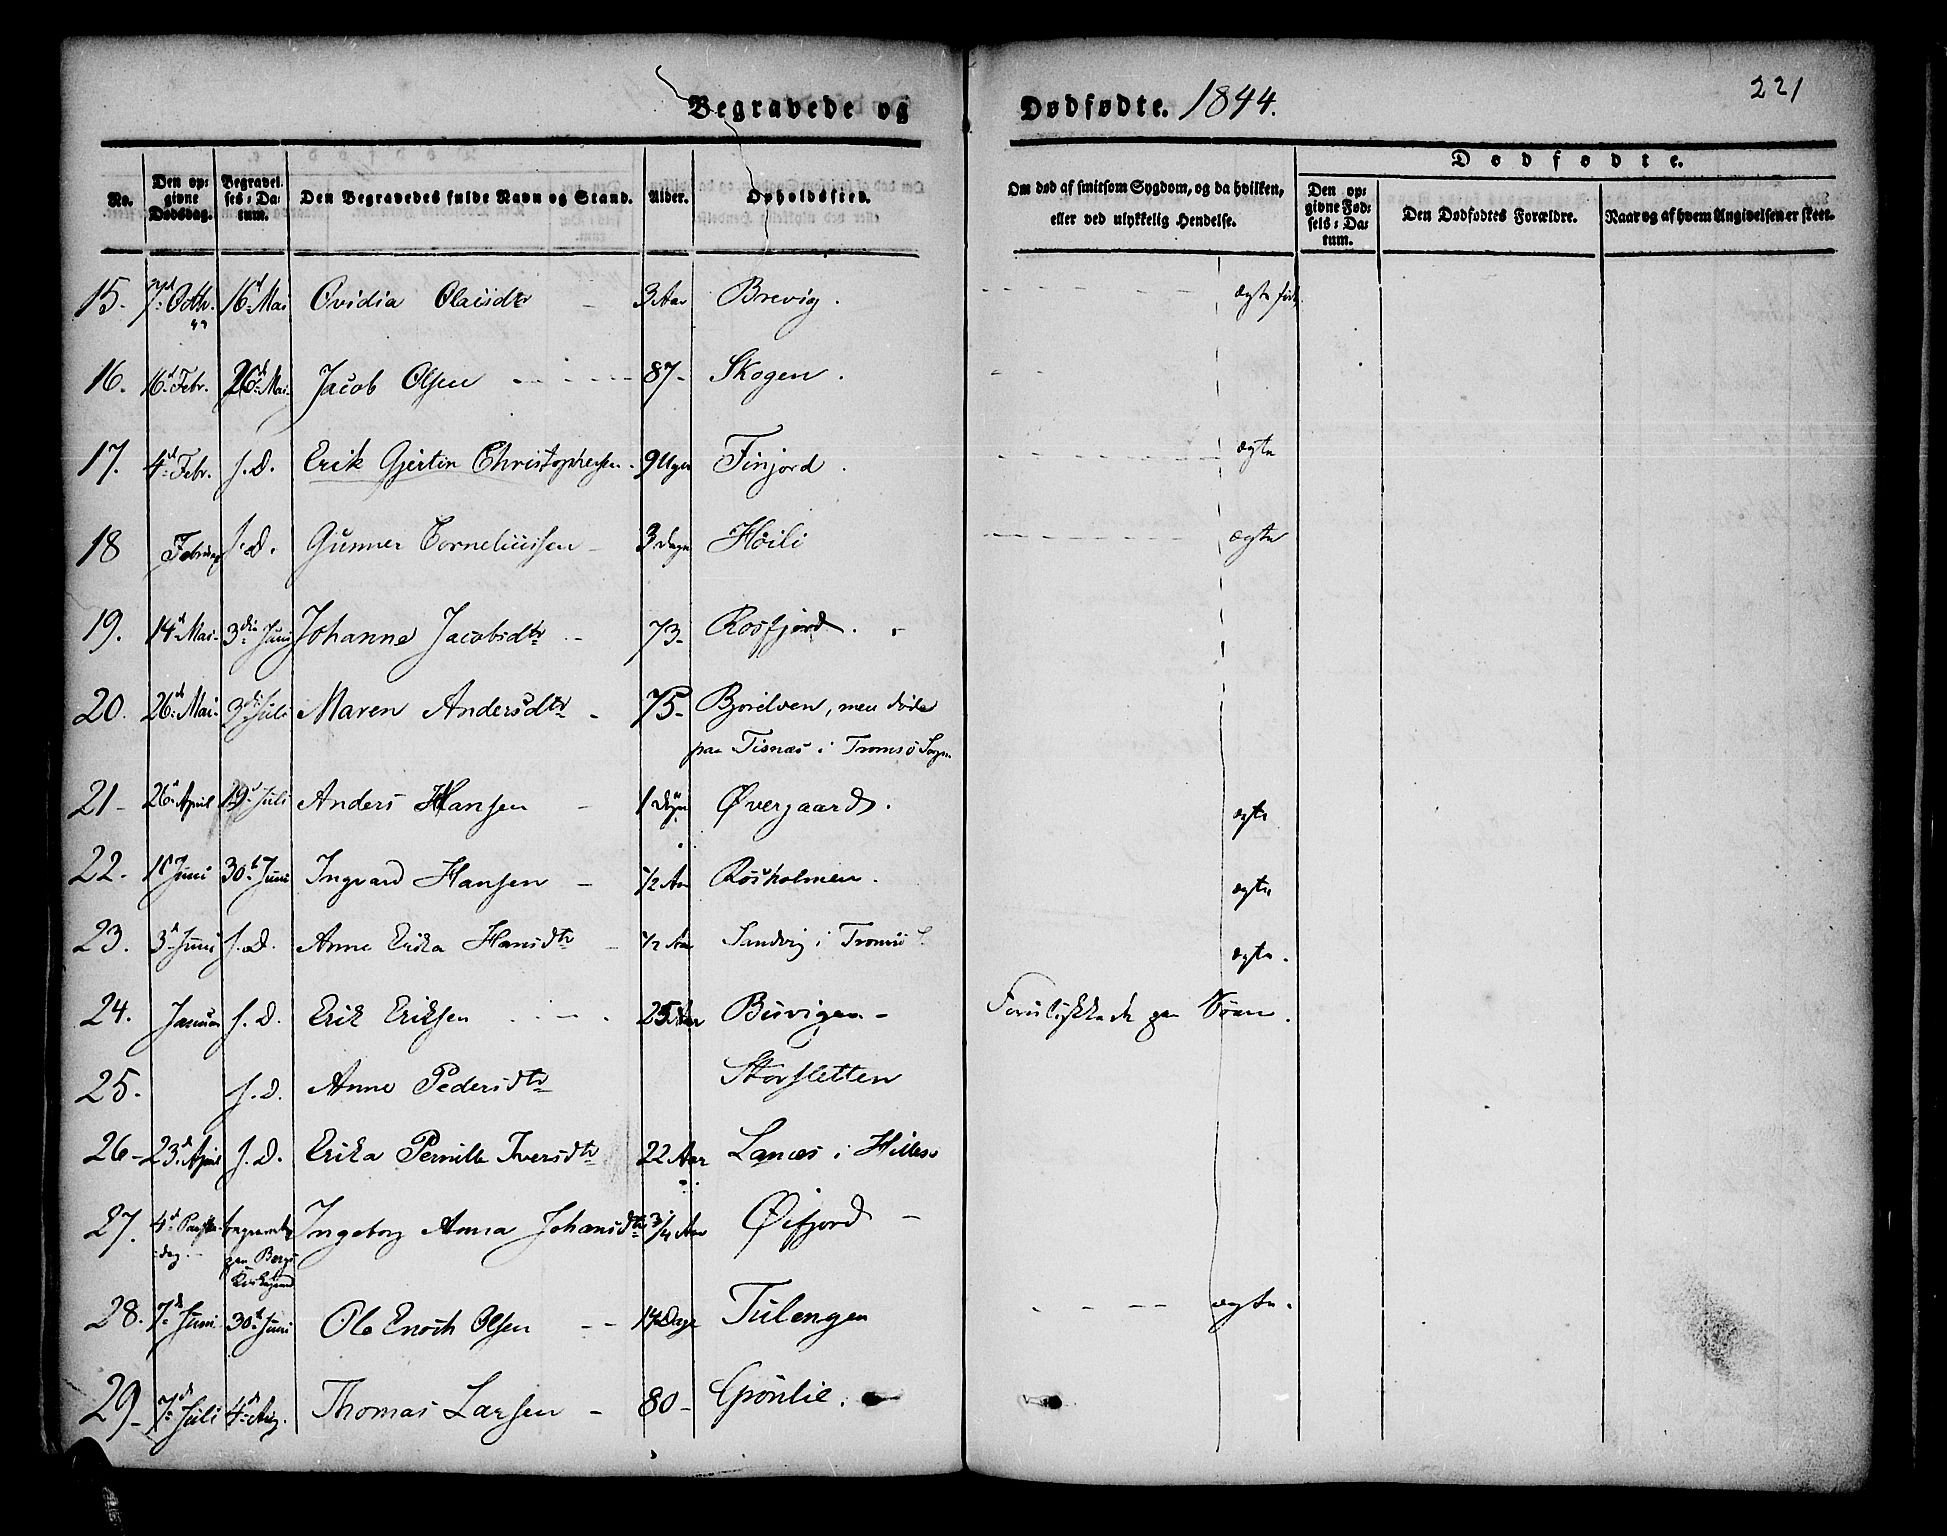 Begravede og Dødfødte. 1844. 221
No. Den opgivne Dødsdag. Begravelses-Datum. Den Begravedes fulde Navn og Stand. Alder. Opholdssted. Om død af smitsom Sygdom, og da hvilken, eller ved ulykkelig Hendelse. Dødfødte. Den opgivne Fødsels-Datum. Den Dødfødtes Forældre. Naar og af hvem Angivelsen er skeet.
15. 7 Octbr. 43 16d Mai Ovidia Olausdtr 3 Aar Brevig. ægte født
16. 16d Febr. 26d Mai Jacob Olsen 87 Skogen.
17. 4d Febr. s. D. Erik Gjertin Christophersen 9 Uger Finjord. ægte
18 Februar s. D. Gunner Corneliussen 3 Dage Höili ægte
19. 14d Mai 3die Juni Johanne Jacobsdtr 73 Rosfjord.
20. 26d Mai 3die Juli Maren Andersdtr 75 Bjorelven, men døde
paa Tisnæs i Tromsö Sogn
21 26d April 19d Juli Anders Hansen 1 Døgn Øvergaard. ægte
22. 11 Juni 30d Juni Ingvard Hansen 1/2 Aar Rosholmen. ægte
23. 3d Juni s. D. Anne Erika Hansdtr 1/2 Aar Sandvig i Tromsö S. ægte.
24. Januar s. D. Erik Eriksen 25 Aar Buvigen Forulykkede paa Søen.
25. s. D. Anne Pedersdtr Storsletten
26 23d April s. D. Erika Pernille Iversdtr 22 Aar Lanæs i Hillesø
27. 4d Paaskedag. begravet paa Bergs Kirkegaard Ingeborg Anna Johansdtr 3/4 Aar Øifjord
28. 7d Juni 30d Juni Ole Enoch Olsen 14 Dage Tulengen ægte.
29 7d Juli 4d Aug. Thomas Larsen 80 Grönlie.